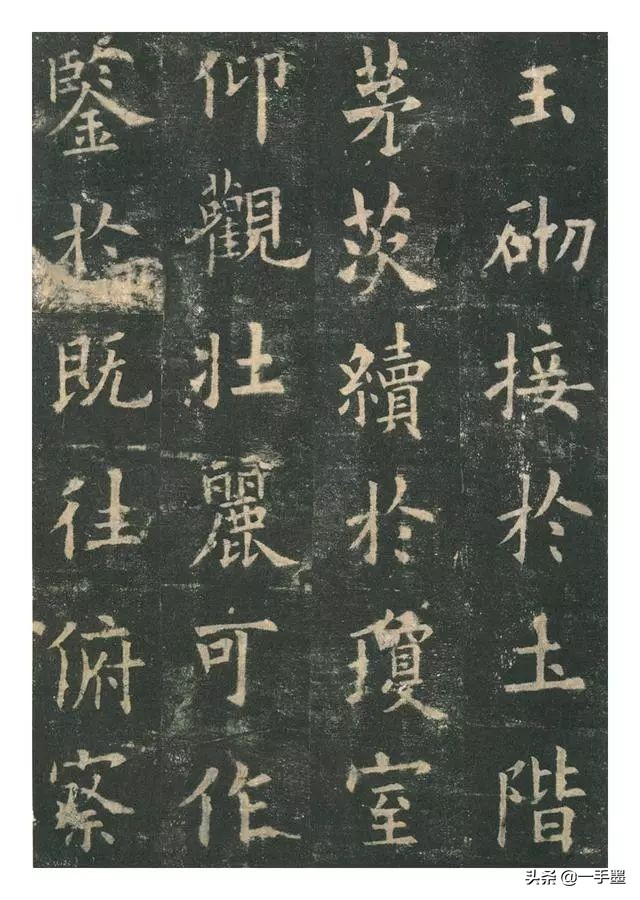 玉砌接於土階
茅茨續於瓊室
仰觀壯麗可作
鑒於既往俯察
头条 @一手墨